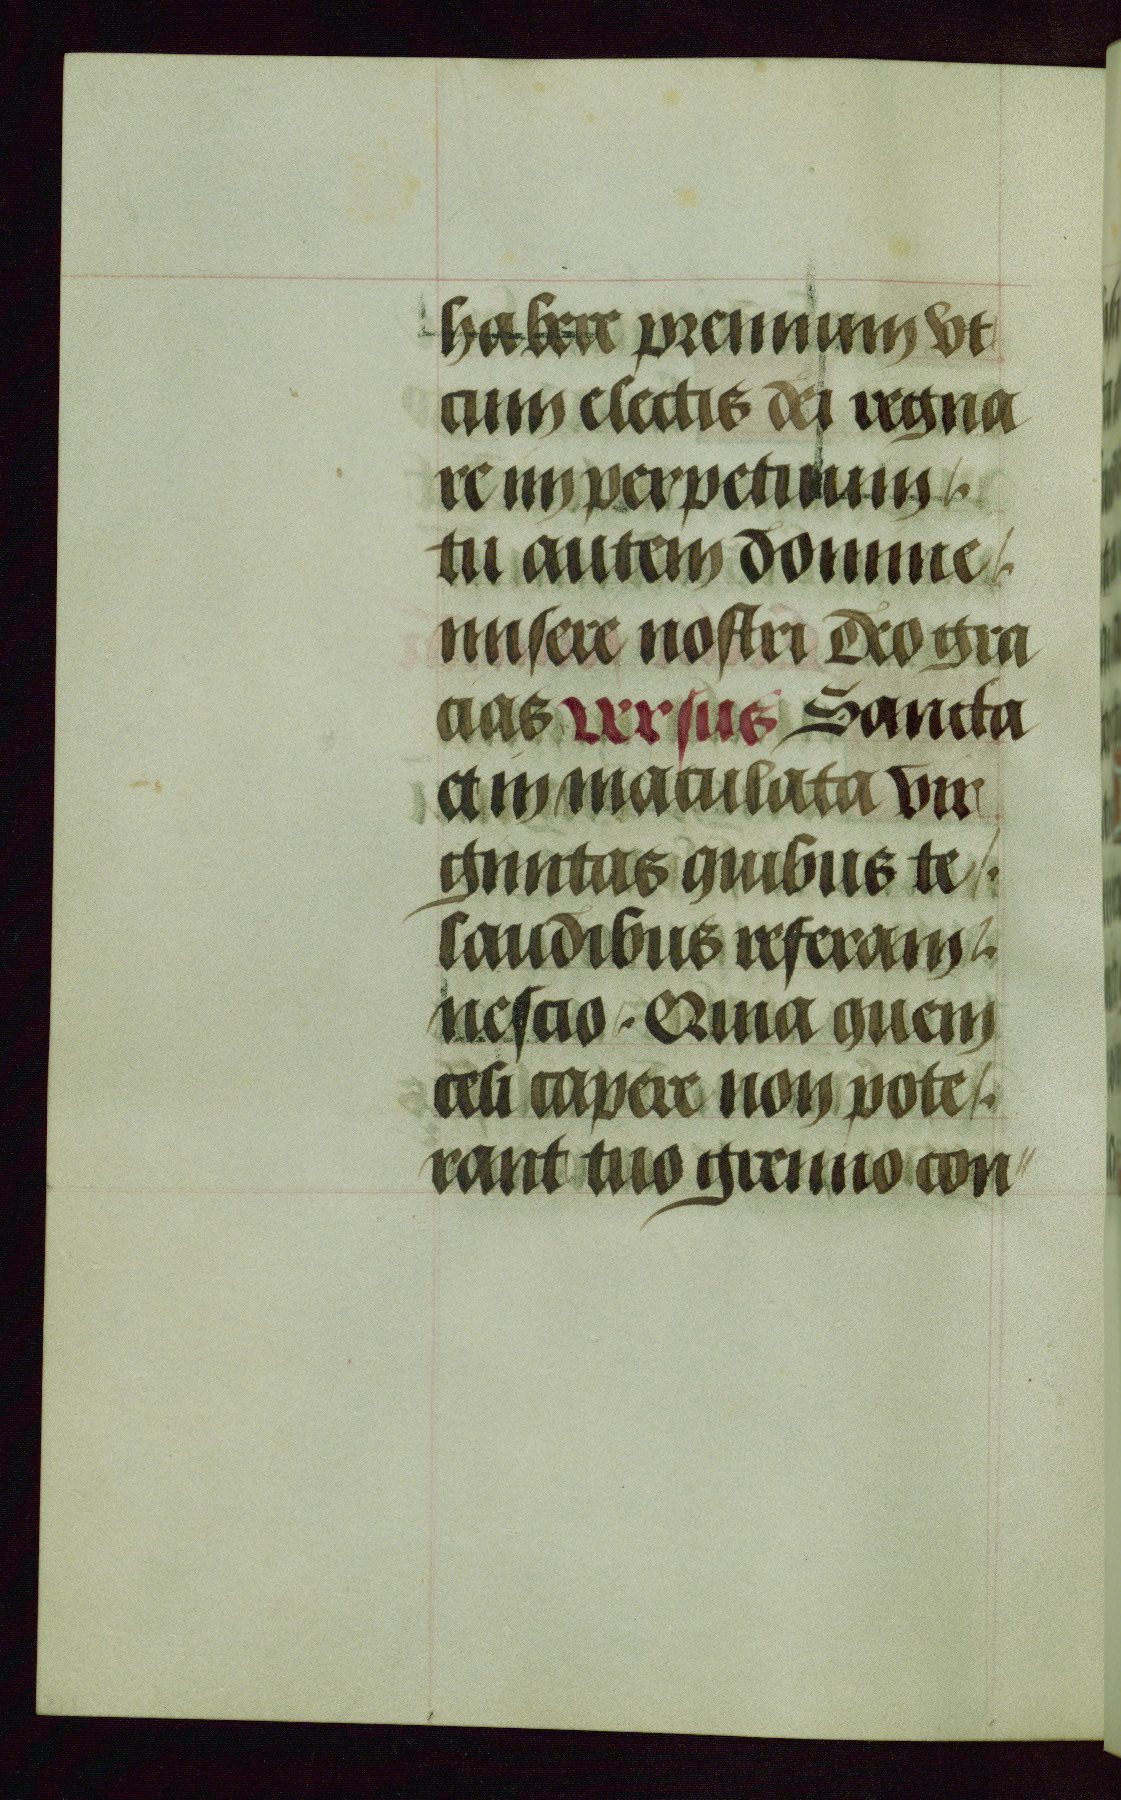 habere premium vt
cum electis dei regna
re in perpetuum /.
tu autem domine /.
misere nostri deo gra
cias versus Sancta
et in maculata vir
ginitas quibus te /.
laudibus referam /.
nescio . Quia quem
celi capere non pote /.
rant tuo gremio con //